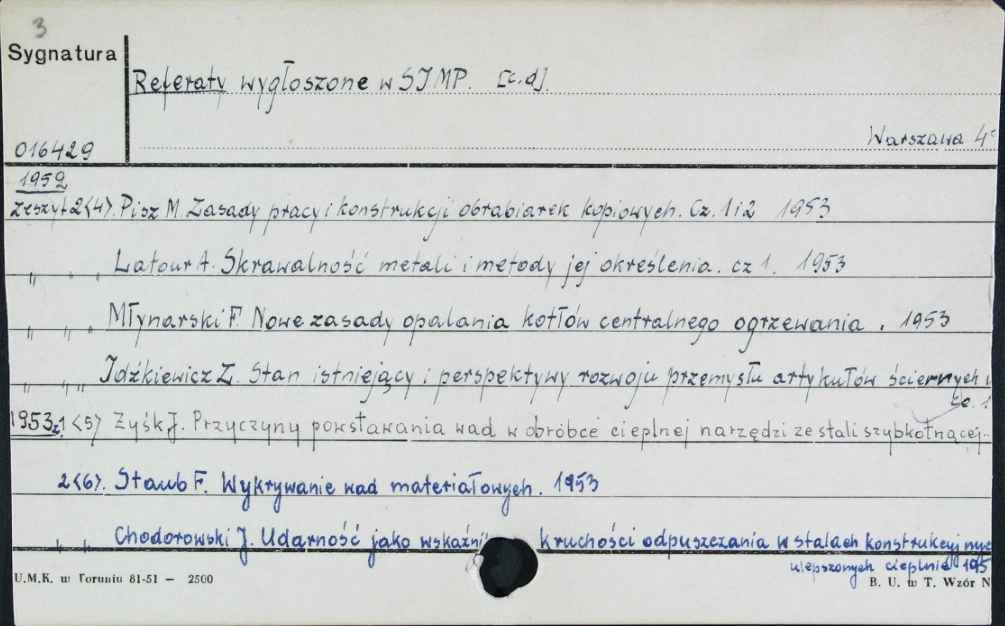 3
Sygnatura
Referaty wygłoszone w SIMP. [c.d].
016429
Warszawa 4°
1952
Zeszyt 2<4>. Pisz M Zasady pracy i konstrukcji obrabiarek kopiowych. Cz. 1 i 2 1953
" " " Latour A. Skrawalność metali i metody jej określenia. cz 1. 1953
" " " Młynarski F. Nowe zasady opalania kotłów centralnego ogrzewania. 1953
" " " Idźkiewicz Z. Stan istniejący i perspektywy rozwoju przemysłu artykułów ściernych
cz. 1
1953 z.1 <5> Zyśk J. Przyczyny powstawania wad w obróbce cieplnej narzędzi ze stali szybkotnącej.
2<6>. Staub F. Wykrywanie wad materiałowych. 1953
" " Chodorowski J. Udarność jako kruchości odpuszczania w stalach
ulepszonych cieplnie 195
U.M.K. w Toruniu 81-51 — 2500
B. U. w T. Wzór N